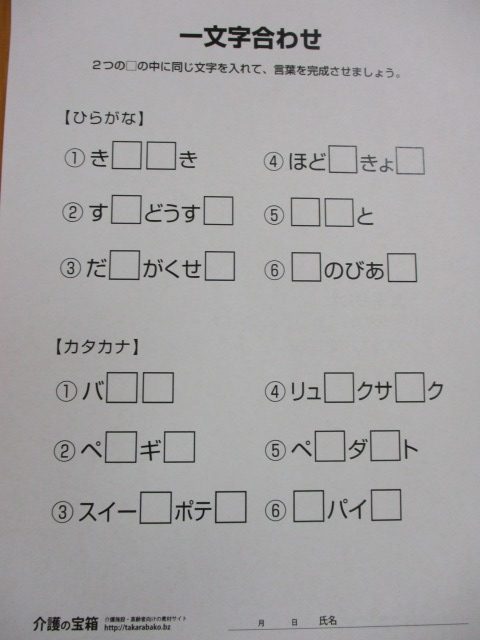 一文字合わせ
2つの□の中に同じ文字を入れて、言葉を完成させましょう。
【ひらがな】
① き□□き
④ ほど□きょ□
② す□どうす□
⑤ □□と
③ だ□がくせ□
⑥ □のびあ□
【カタカナ】
① バ□□
④ リュ□クサ□ク
② ペ□ギ□
⑤ ペ□ダ□ト
③ スイー□ポテ□
⑥ □パイ□
介護の宝箱 介護施設・高齢者向けの素材サイト
http://takarabako.bz
月 日 氏名